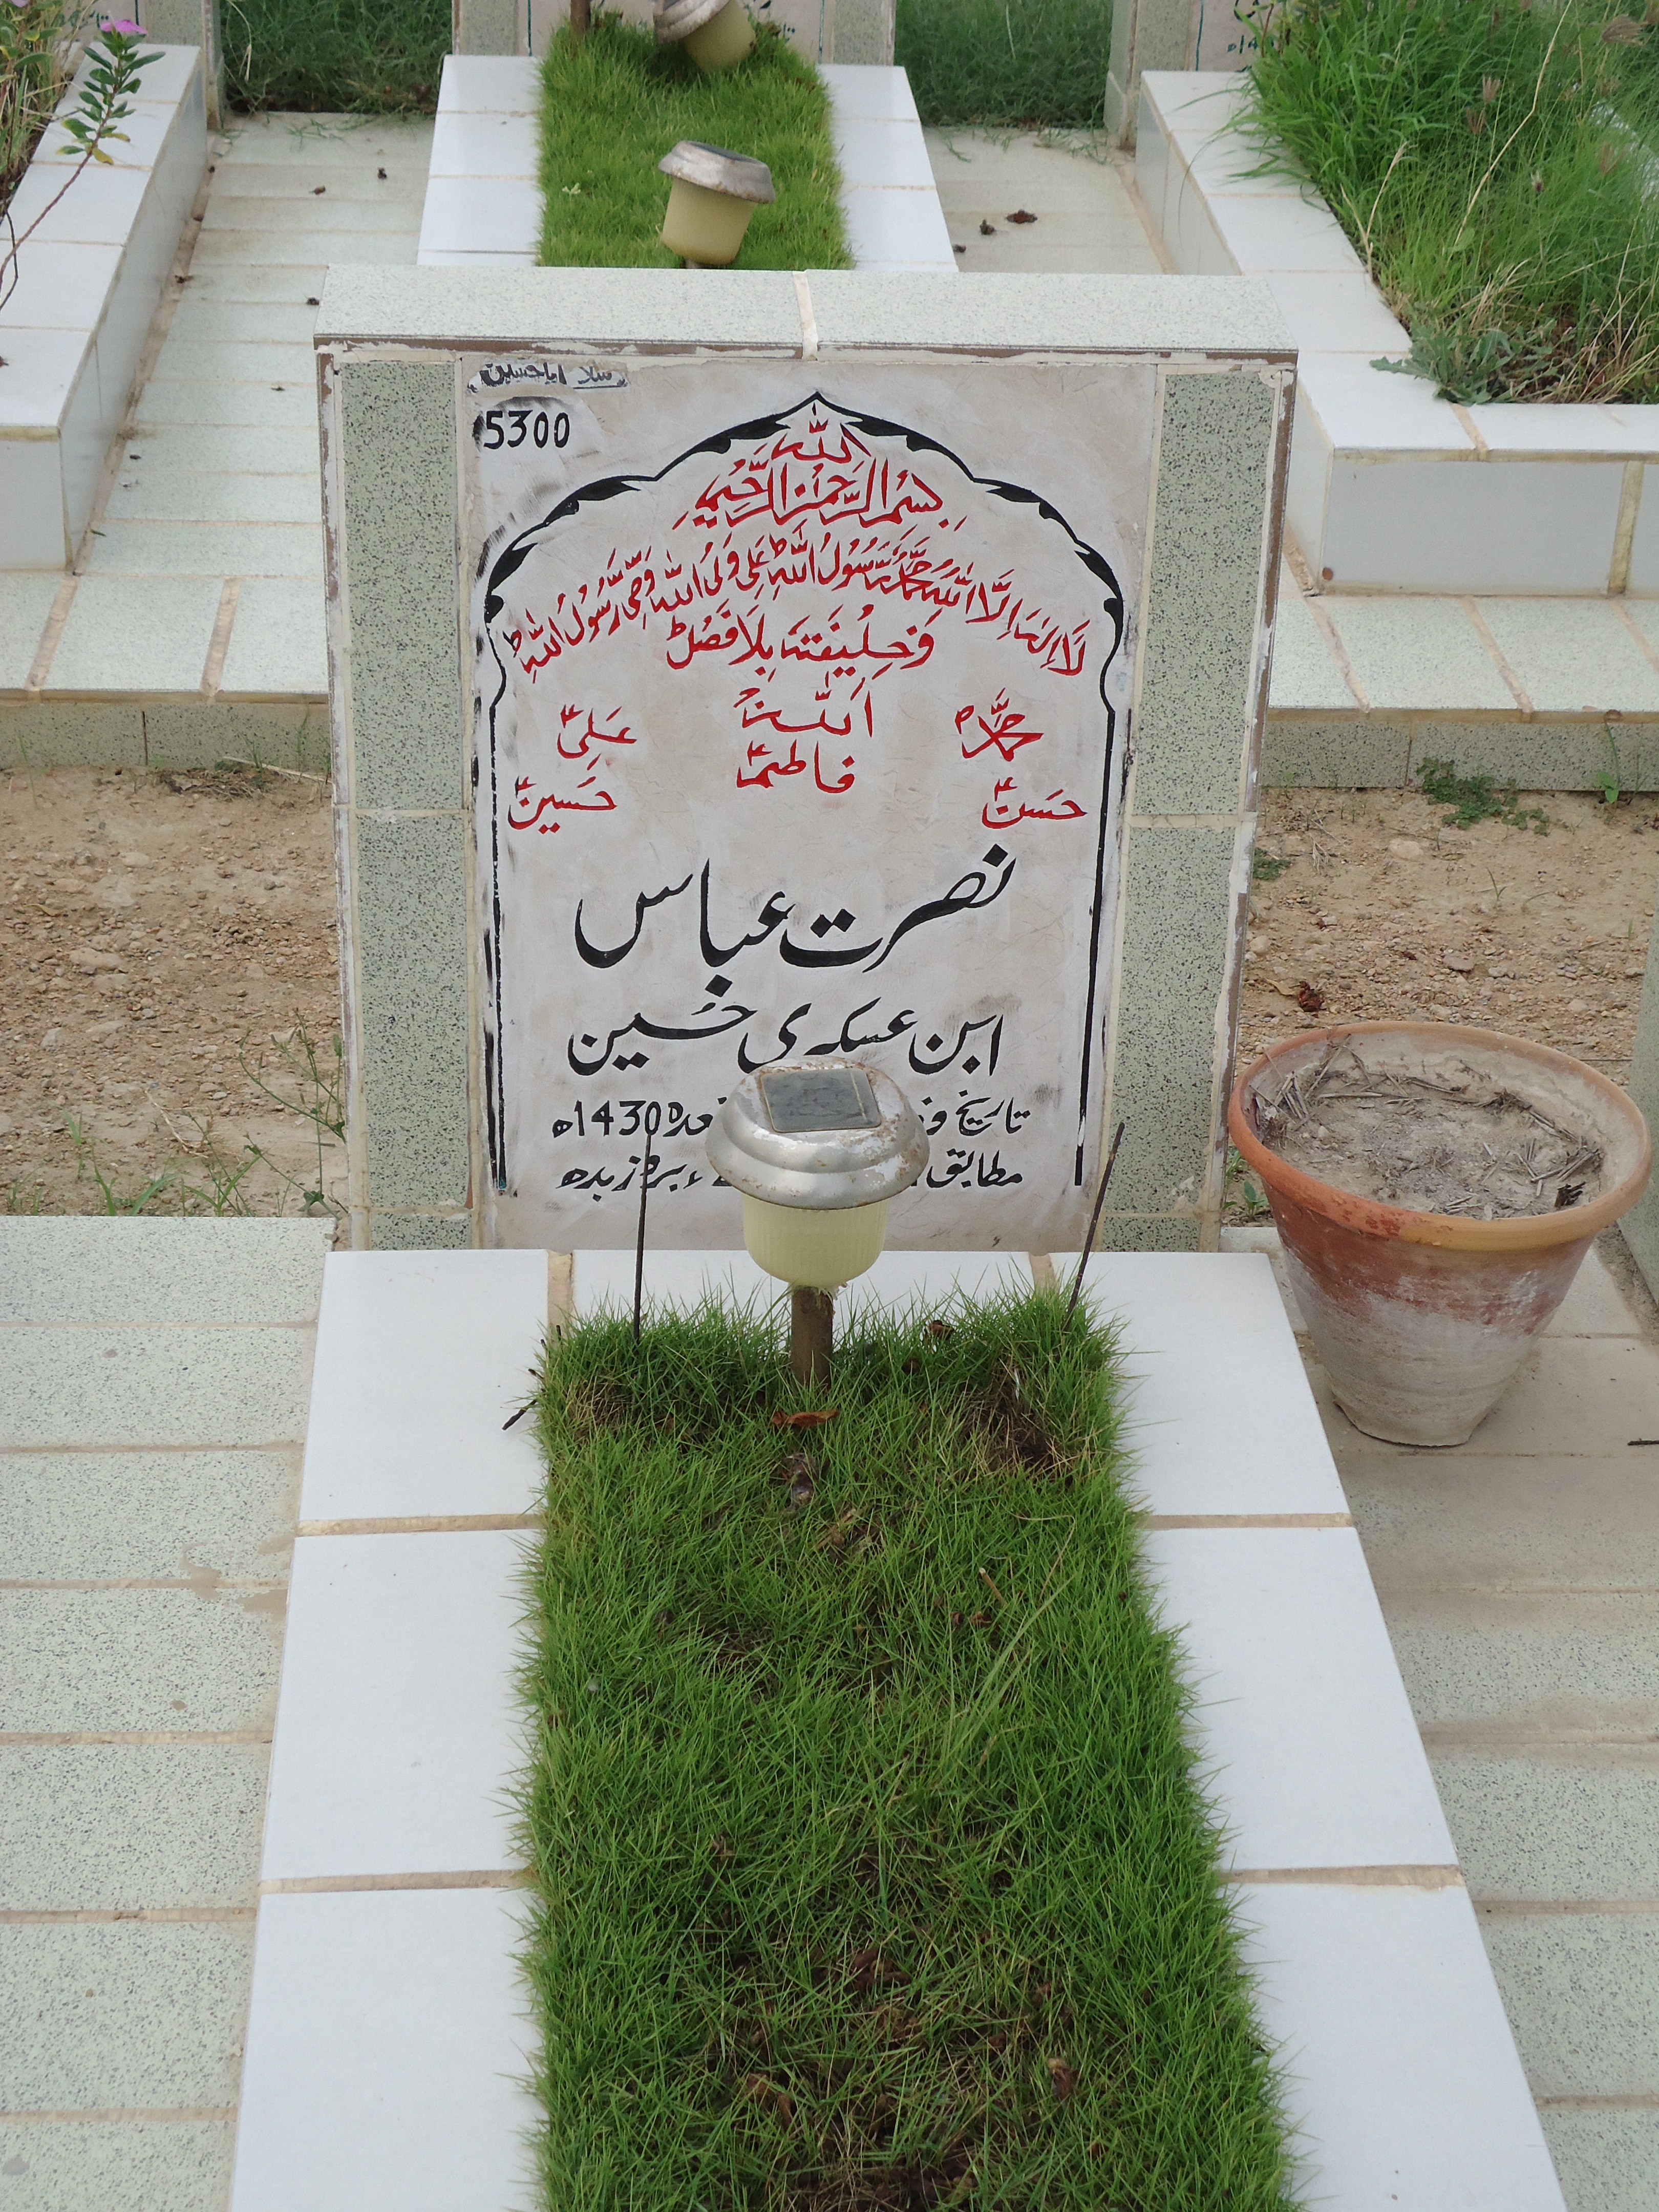 سلام یا حسین
5300
الله
بِسْمِ الرَّحْمٰنِ الرَّحِيْمِ
لَا اِلٰهَ اِلَّا اللهُ مُحَمَّدٌ رَّسُوْلُ اللهِ عَلِیٌّ وَلِیُّ اللهِ وَصِیُّ رَسُوْلُ اللهِ
وَخَلِیْفَتَهٗ بِلَا فَصْلٌ
محمدؐ اَللهُ عَلیؑ
فاطمہؑ
حسنؑ حسینؑ
نصرت عباس
ابن عسکری حسین
تاریخ 1430ھ
مطابق ء بروز بدھ